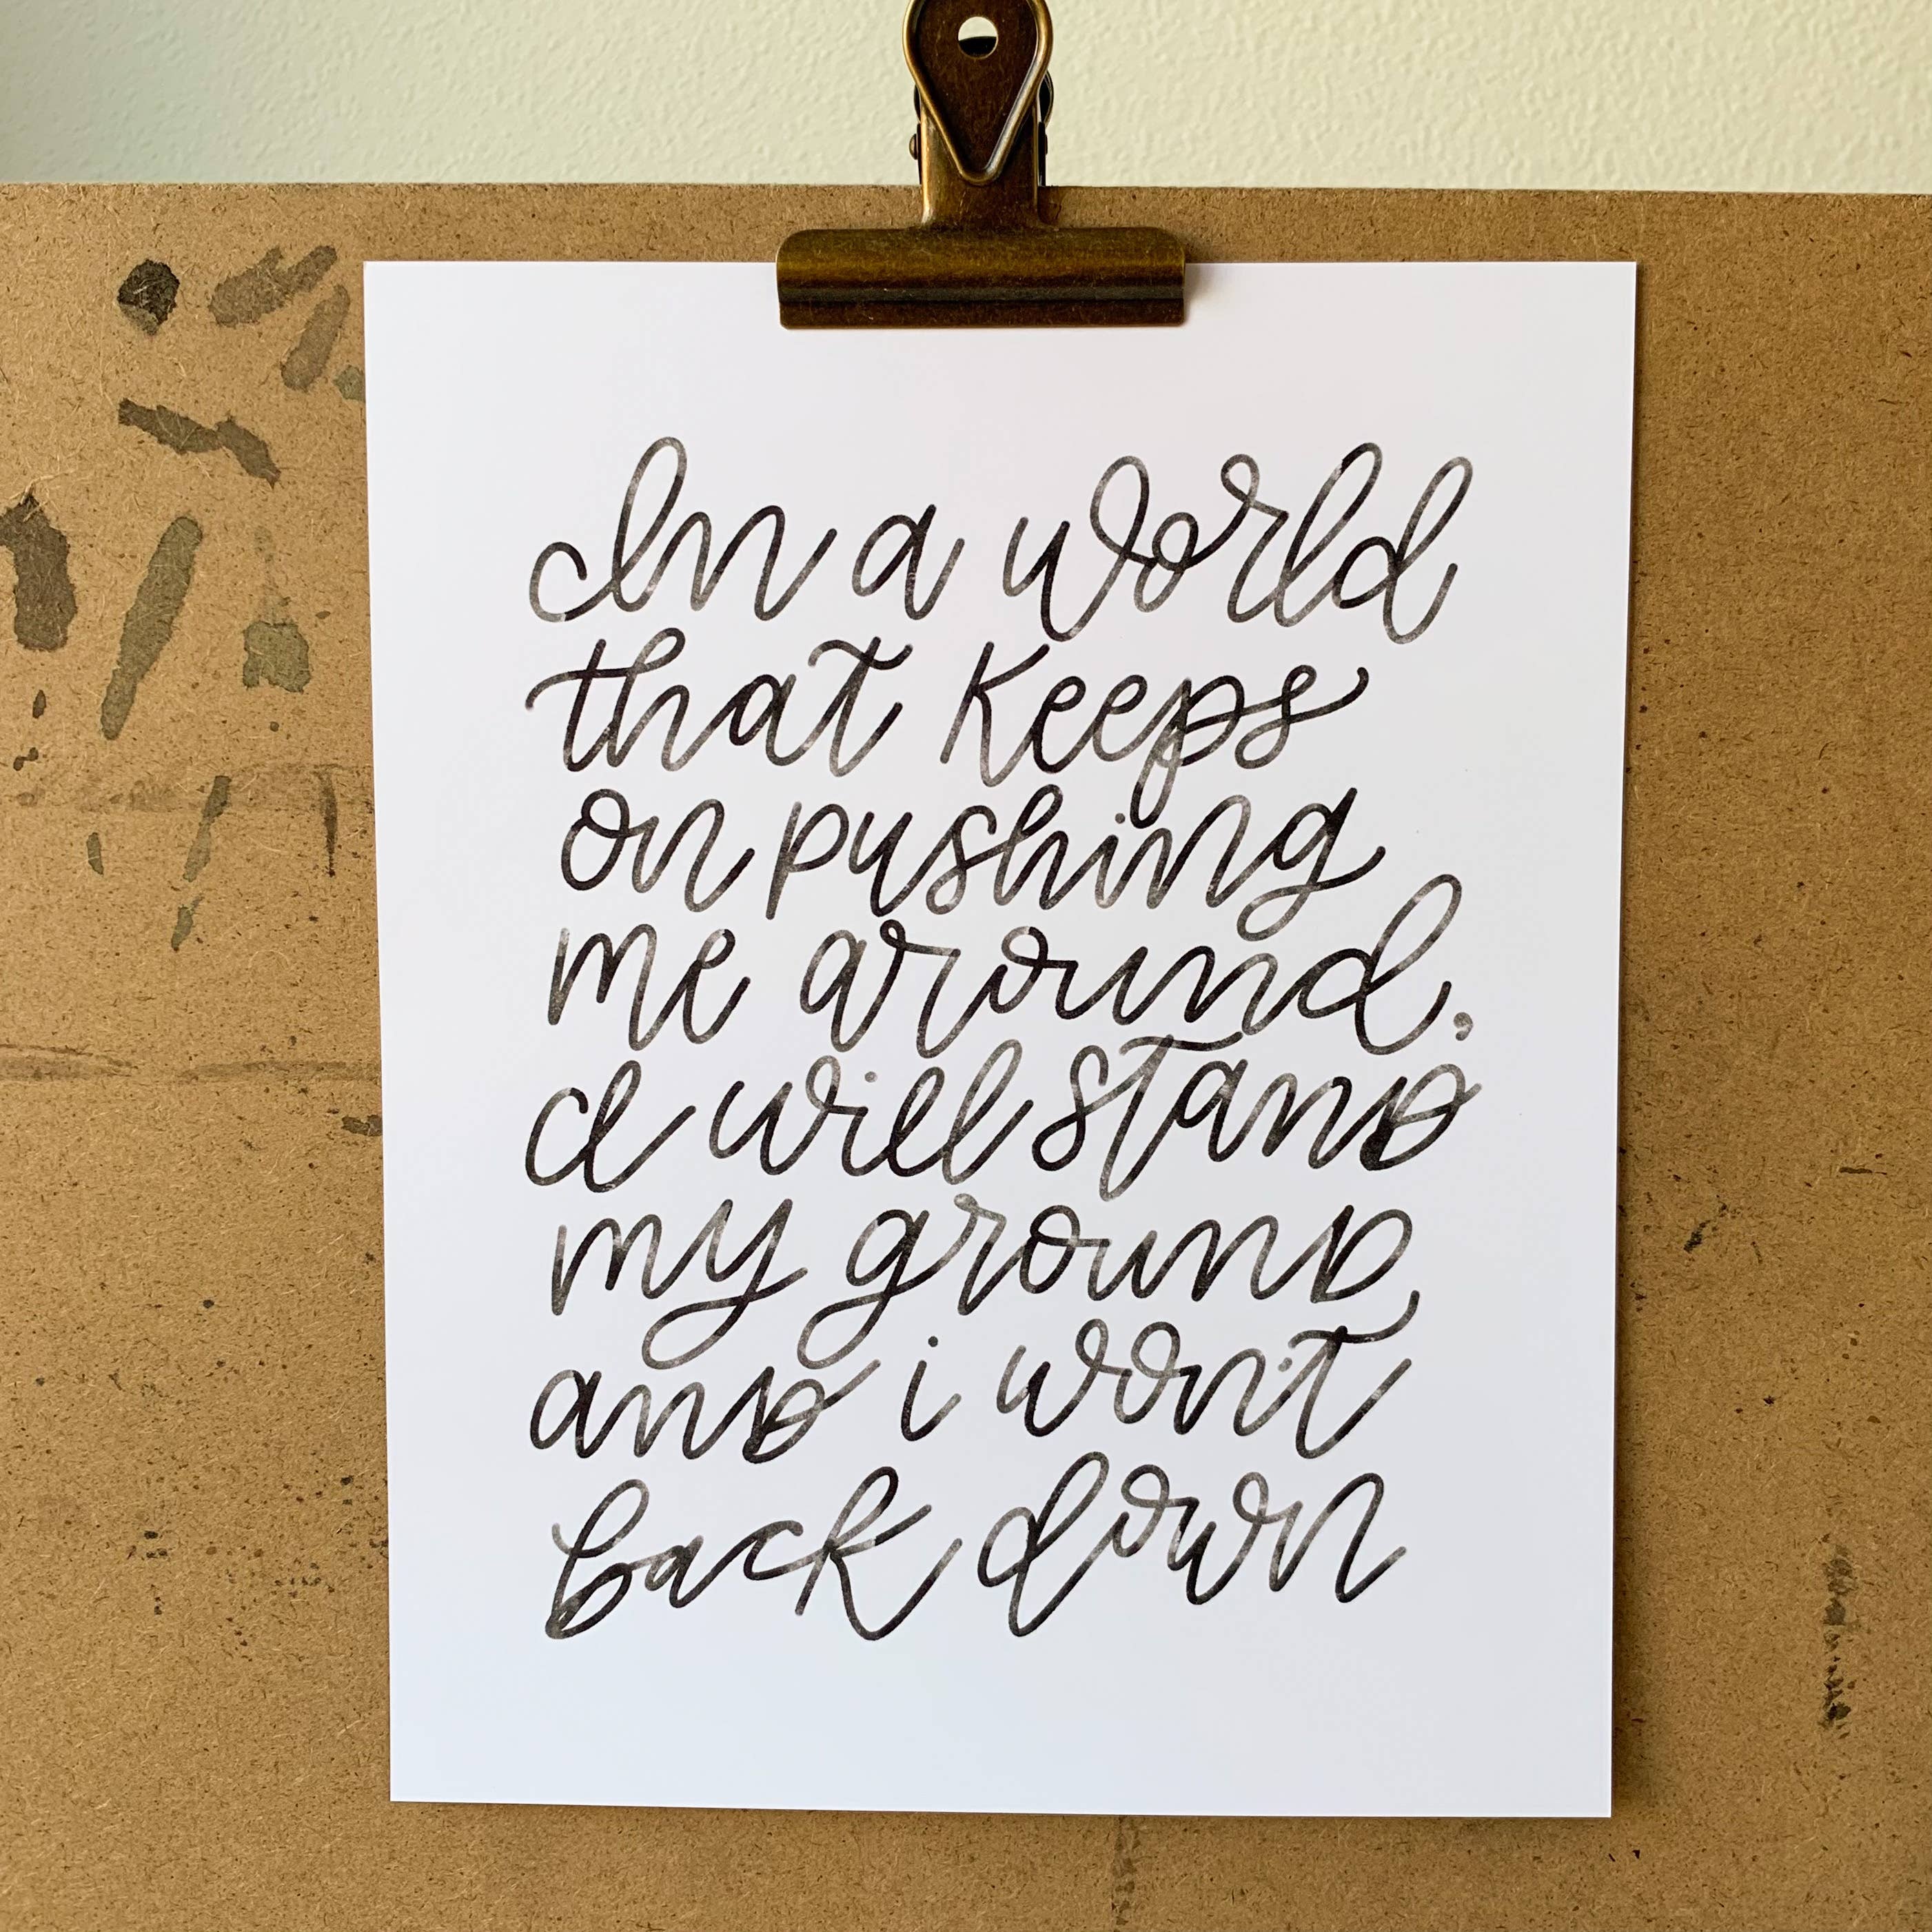 In a world
that keeps
on pushing
me around.
I will stand
my ground,
and i won't
back down